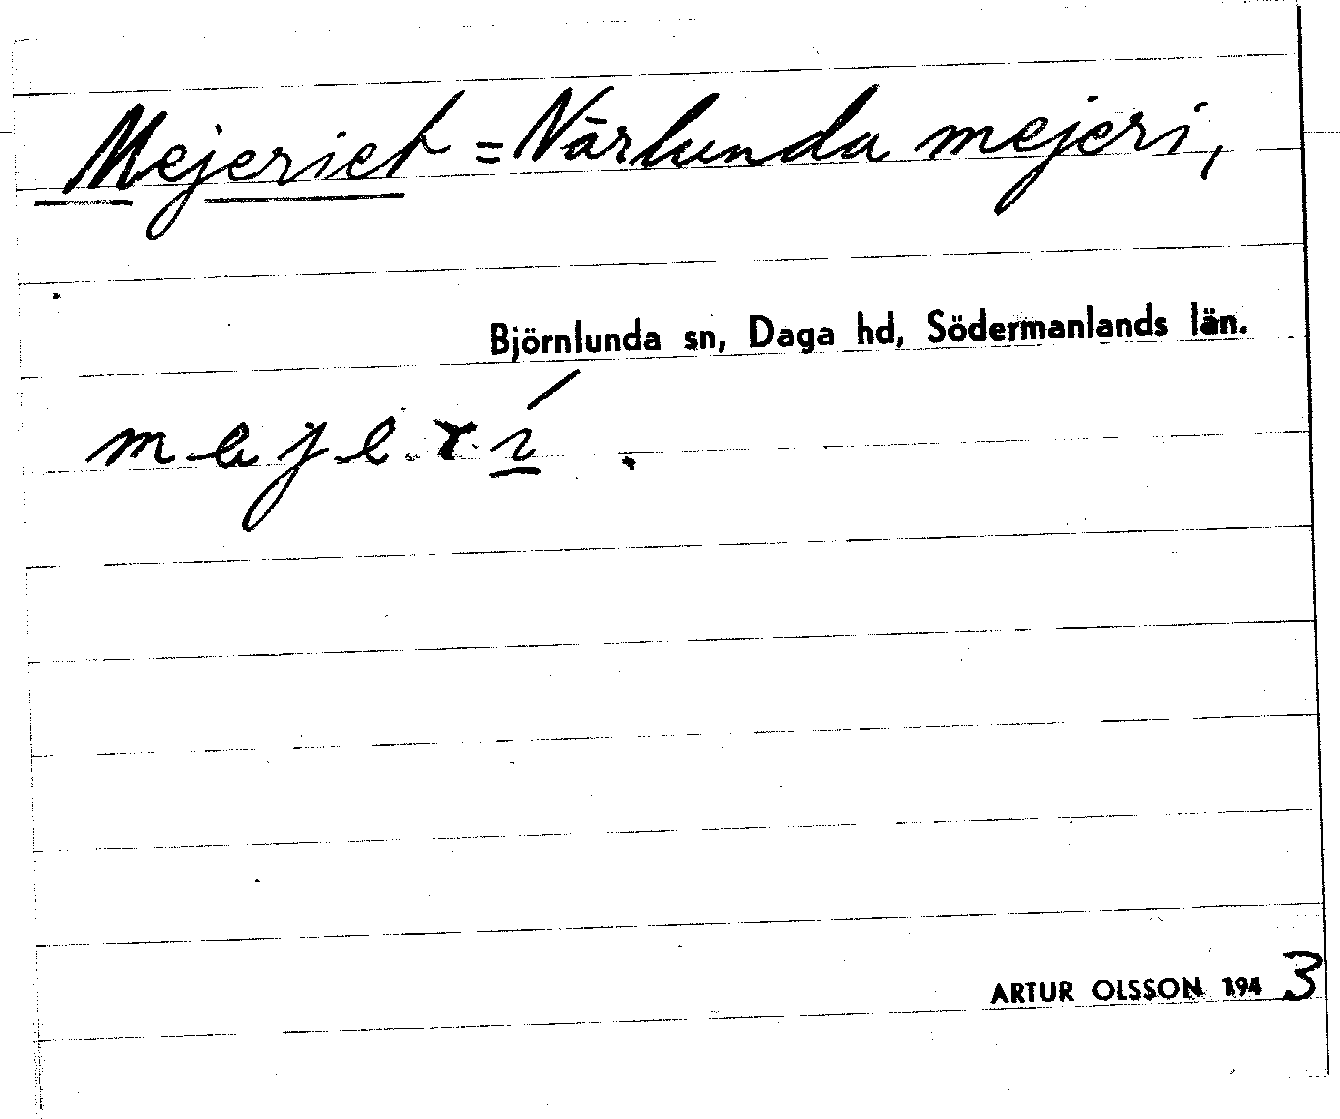 Mejeriet = Närlunda mejeri,
Björnlunda sn, Daga hd, Södermanlands län.
mejerí.
ARTUR OLSSON 1943